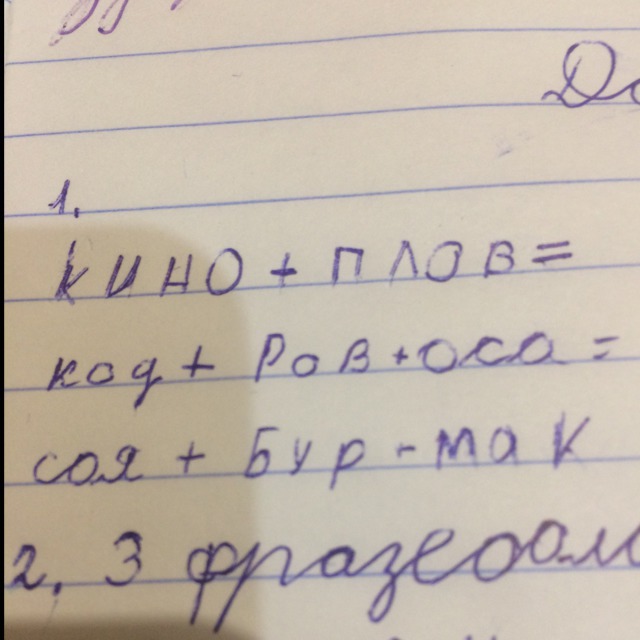 До
1.
КИНО + ПЛОВ =
код + Ров + оса =
соя + Бур - мак
2. 3 фразеоло